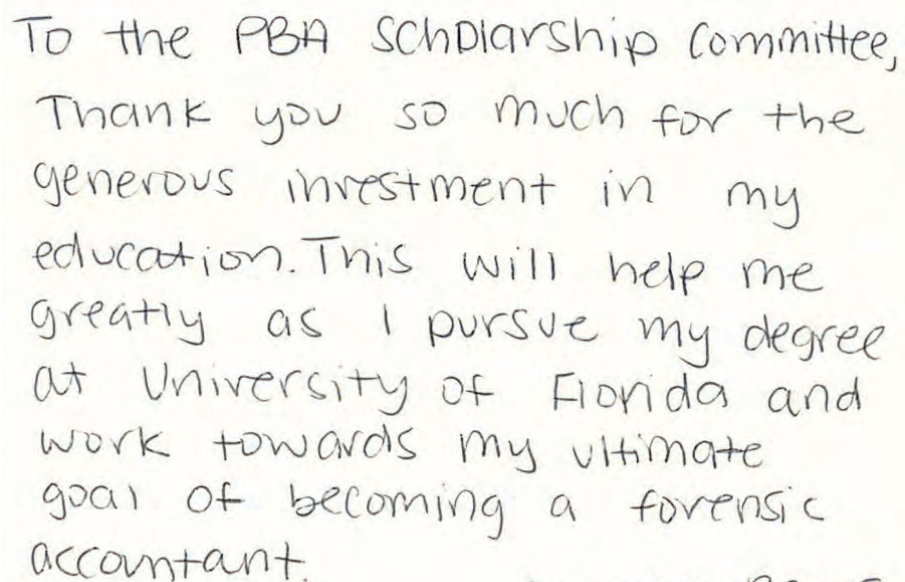 To the PBA Scholarship Committee,
Thank you so much for the
generous investment in my
education. This will help me
greatly as I pursue my degree
at University of Florida and
work towards my ultimate
goal of becoming a forensic
accountant.